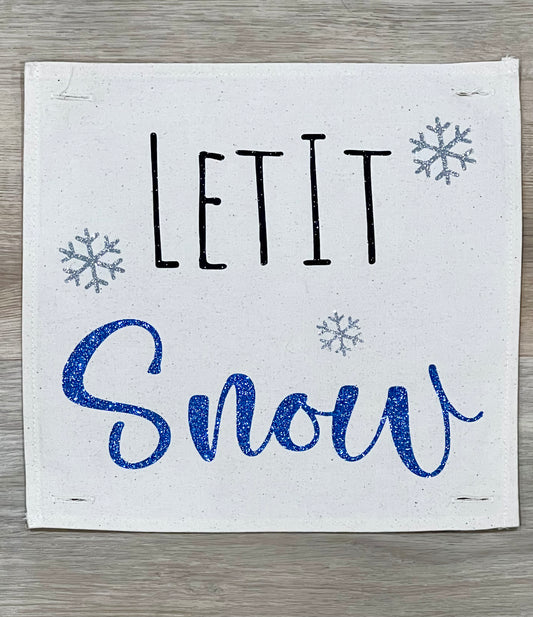 LET IT
Snow